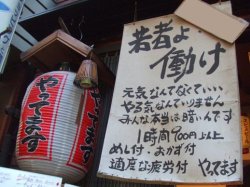 若者よ
働け
元気なんてなくていい
やる気なんていりません
みんな本当は暗いんです
1時間900円以上
めし付 おかず付
適度な疲労付 やってます
やってます
やってます